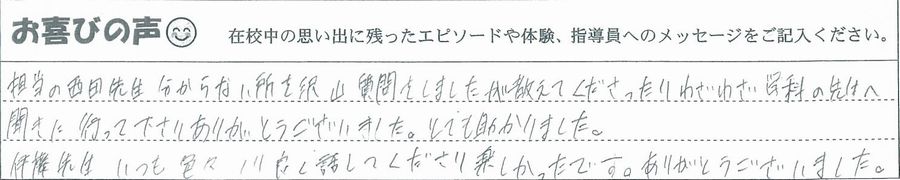 お喜びの声
在校中の思い出に残ったエピソードや体験、指導員へのメッセージをご記入ください。
担当の西田先生 分からない所を沢山 質問をしましたが教えてくださったりわざわざ学科の先生へ
聞きに行って下さりありがとうございました。とても助かりました。
先生 いつも色々 話してくださり楽しかったです。ありがとうございました。